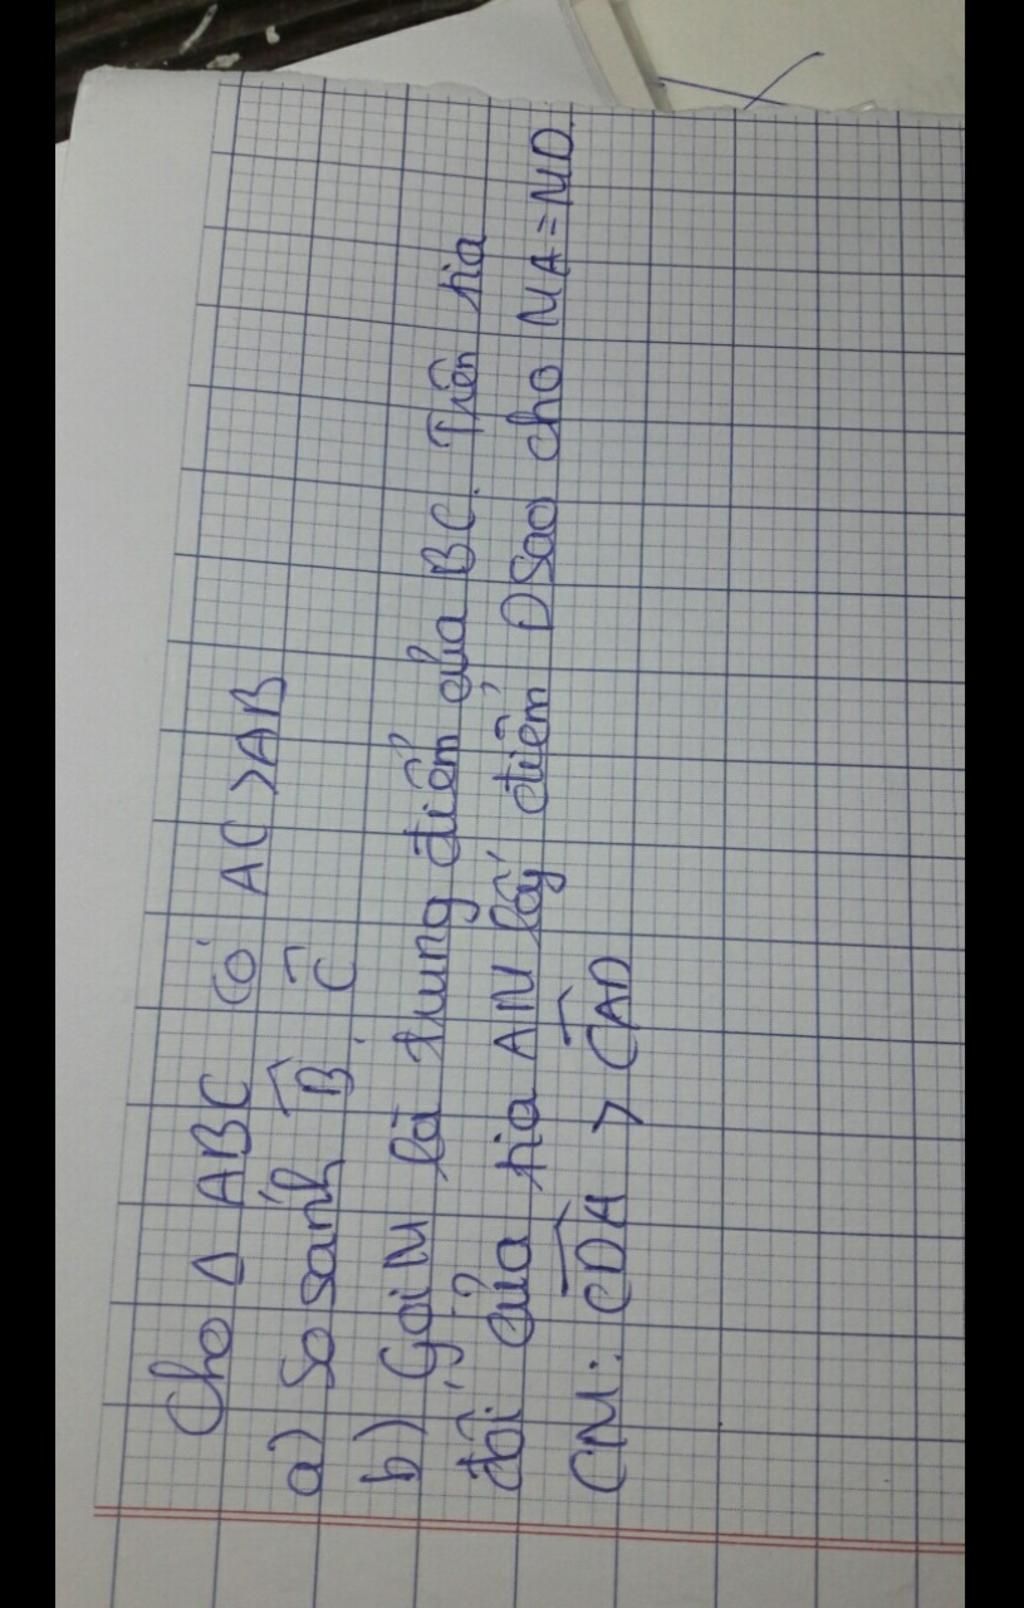 Cho Δ ABC có AC > AB
a) So sánh B̂, Ĉ
b) Gọi M là trung điểm của BC. Trên tia
đối của tia AM lấy điểm D sao cho MA = MD.
CM: ĈDA > ĈAD